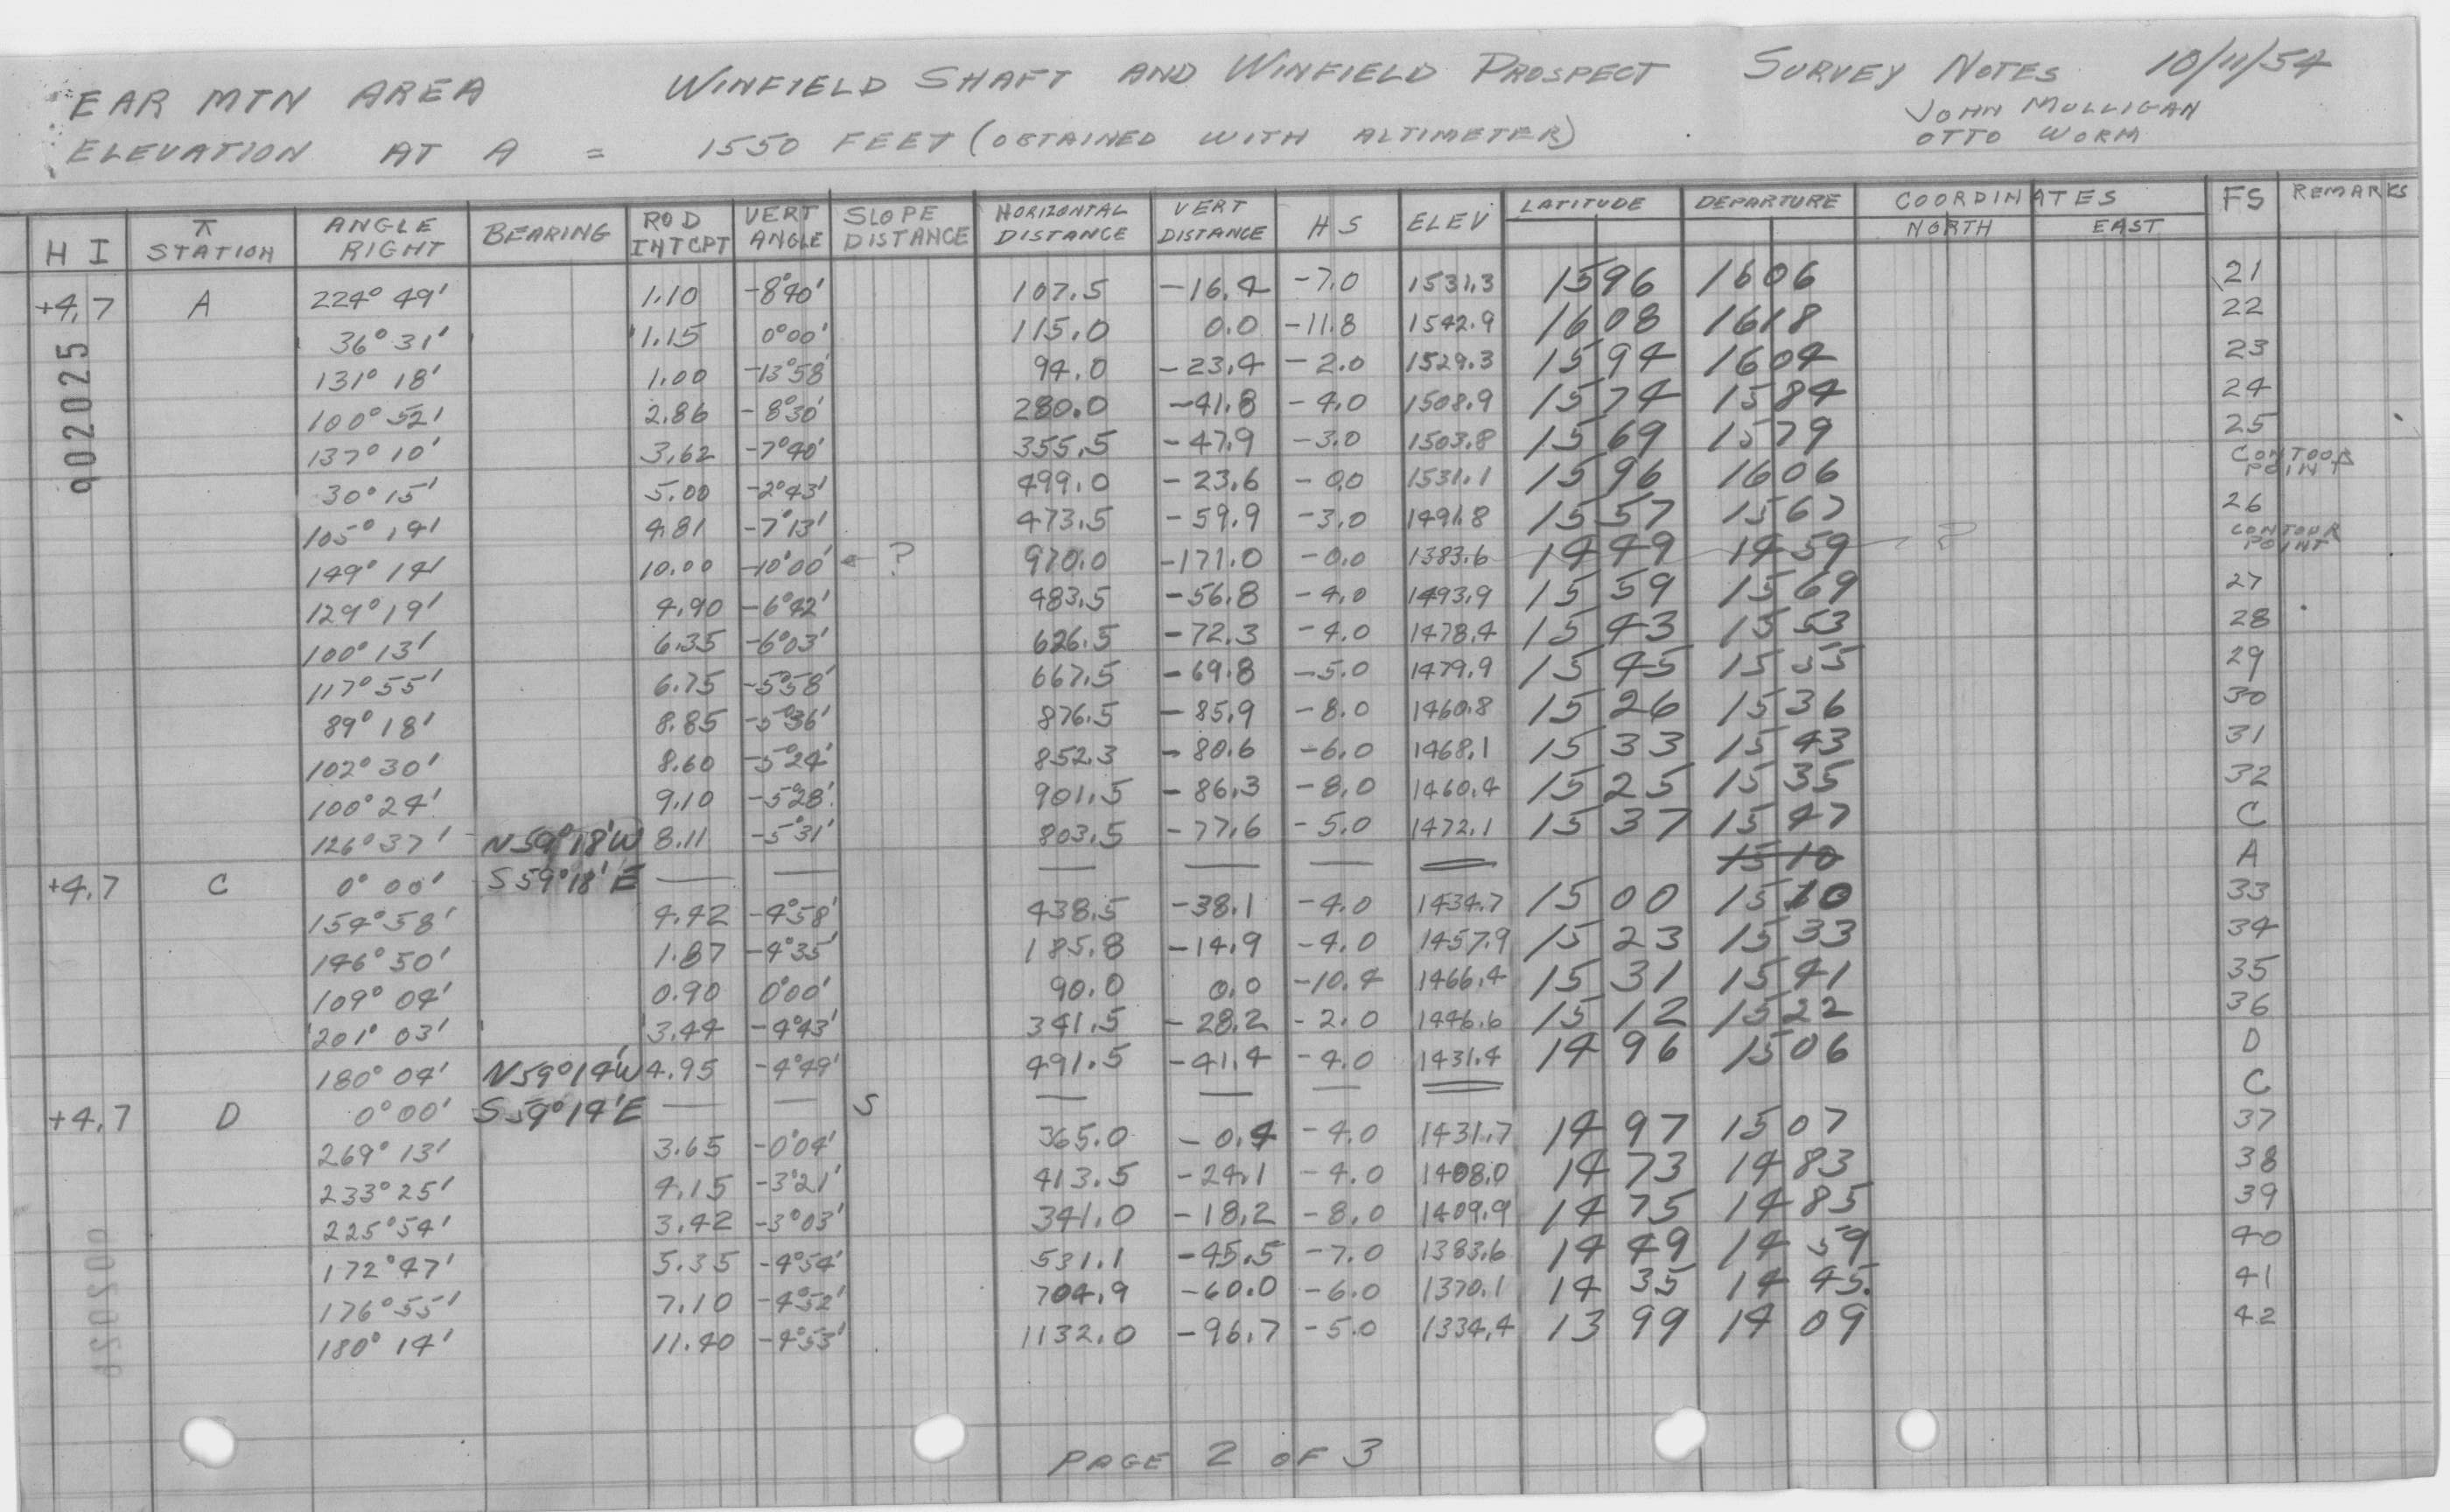 EAR MTN AREA WINFIELD SHAFT AND WINFIELD PROSPECT SURVEY NOTES 10/11/54
JOHN MULLIGAN
ELEVATION AT A = 1550 FEET (OBTAINED WITH ALTIMETER) OTTO WORM
H I ⊼ STATION ANGLE RIGHT BEARING ROD INTCPT VERT ANGLE SLOPE DISTANCE HORIZONTAL DISTANCE VERT DISTANCE H S ELEV LATITUDE DEPARTURE COORDINATES NORTH EAST FS REMARKS
+4.7 A 224° 49' 1.10 -8°40' 107.5 -16.4 -7.0 1531.3 1596 1606 21
36° 31' 1.15 0°00' 115.0 0.0 -11.8 1542.9 1608 1618 22
131° 18' 1.00 -13°58' 94.0 -23.4 -2.0 1529.3 1594 1604 23
100° 52' 2.86 -8°30' 280.0 -41.8 -4.0 1508.9 1574 1584 24
137° 10' 3.62 -7°40' 355.5 -47.9 -3.0 1503.8 1569 1579 25
30° 15' 5.00 -2°43' 499.0 -23.6 -0.0 1531.1 1596 1606 CONTOUR POINT
105° 14' 4.81 -7°13' 473.5 -59.9 -3.0 1491.8 1557 1567 26
149° 14' 10.00 -10°00' ← ? 970.0 -171.0 -0.0 1383.6 1449 1459 ? CONTOUR POINT
129° 19' 4.90 -6°42' 483.5 -56.8 -4.0 1493.9 1559 1569 27
100° 13' 6.35 -6°03' 626.5 -72.3 -4.0 1478.4 1543 1553 28
117° 55' 6.75 -5°58' 667.5 -69.8 -5.0 1479.9 1545 1555 29
89° 18' 8.85 -5°36' 876.5 -85.9 -8.0 1460.8 1526 1536 30
102° 30' 8.60 -5°24' 852.3 -80.6 -6.0 1468.1 1533 1543 31
100° 24' 9.10 -5°28' 901.5 -86.3 -8.0 1460.4 1525 1535 32
126° 37' N 59° 18' W 8.11 -5°31' 803.5 -77.6 -5.0 1472.1 1537 1547 C
+4.7 C 0° 00' S 59° 18' E — — — — — — 1510 A
154° 58' 4.42 -4°58' 438.5 -38.1 -4.0 1434.7 1500 1510 33
146° 50' 1.87 -4°35' 185.8 -14.9 -4.0 1457.9 1523 1533 34
109° 04' 0.90 0°00' 90.0 0.0 -10.4 1466.4 1531 1541 35
201° 03' 3.44 -4°43' 341.5 -28.2 -2.0 1446.6 1512 1522 36
180° 04' N 59° 14' W 4.95 -4°49' 491.5 -41.4 -4.0 1431.4 1496 1506 D
+4.7 D 0° 00' S 59° 14' E — — S — — — — C
269° 13' 3.65 -0°04' 365.0 -0.4 -4.0 1431.7 1497 1507 37
233° 25' 4.15 -3°21' 413.5 -24.1 -4.0 1408.0 1473 1483 38
225° 54' 3.42 -3°03' 341.0 -18.2 -8.0 1409.9 1475 1485 39
172° 47' 5.35 -4°54' 531.1 -45.5 -7.0 1383.6 1449 1459 40
176° 55' 7.10 -4°52' 704.9 -60.0 -6.0 1370.1 1435 1445. 41
180° 14' 11.40 -4°53' 1132.0 -96.7 -5.0 1334.4 1399 1409 42
PAGE 2 OF 3
902025